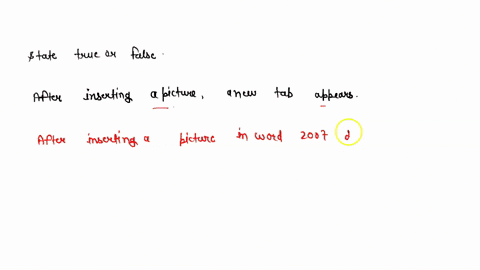 State true or false.
After inserting a picture, a new tab appears.
After inserting a picture in word 2007 d